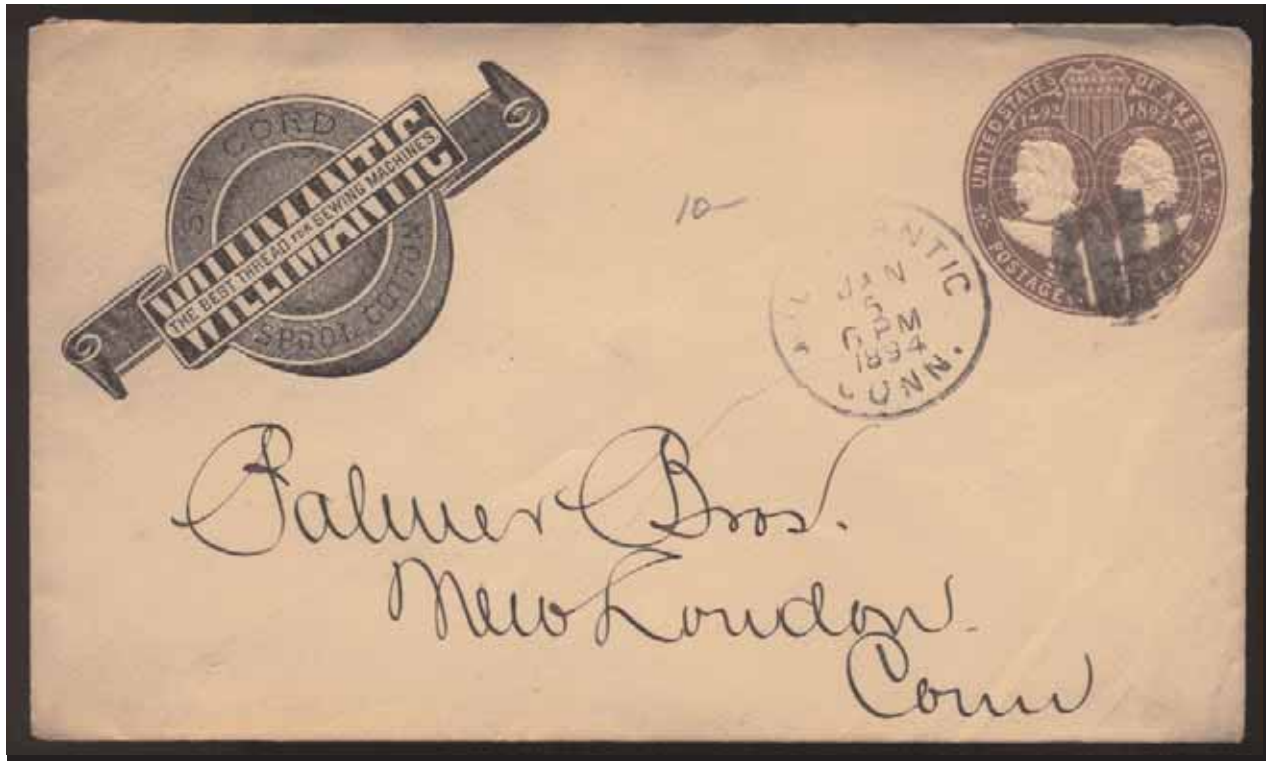 SIX CORD
WILLIMANTIC
THE BEST THREAD FOR SEWING MACHINES
WILLIMANTIC
SPOOL COTTON
UNITED STATES OF AMERICA
1492 1892
POSTAGE
10
ANTIC
JAN
5
6 PM
1894
CONN.
Palmer Bros.
New London.
Conn